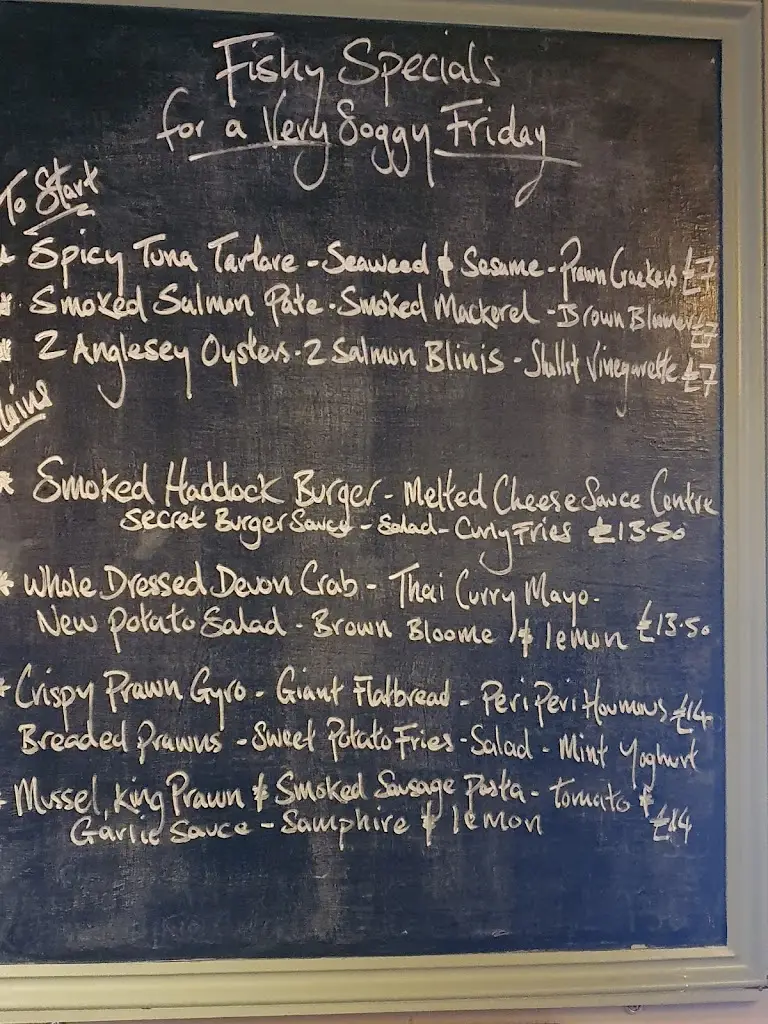 Fishy Specials
for a Very Soggy Friday
To Start
Spicy Tuna Tartare - Seaweed & Sesame - Prawn Crackers £7
Smoked Salmon Pate - Smoked Mackerel - Brown Bloomer £7
2 Anglesey Oysters - 2 Salmon Blinis - Shallot Vinegarette £7
lains
* Smoked Haddock Burger - Melted Cheese Sauce Centre
Secret Burger Sauce - Salad - Curly Fries £13.50
* Whole Dressed Devon Crab - Thai Curry Mayo.
New Potato Salad - Brown Bloome & lemon £13.50
Crispy Prawn Gyro - Giant Flatbread - Peri Peri Houmous £14
Breaded Prawns - Sweet Potato Fries - Salad - Mint Yoghurt
Mussel, King Prawn & Smoked Sausage Pasta - tomato &
Garlic Sauce - Samphire & lemon £14